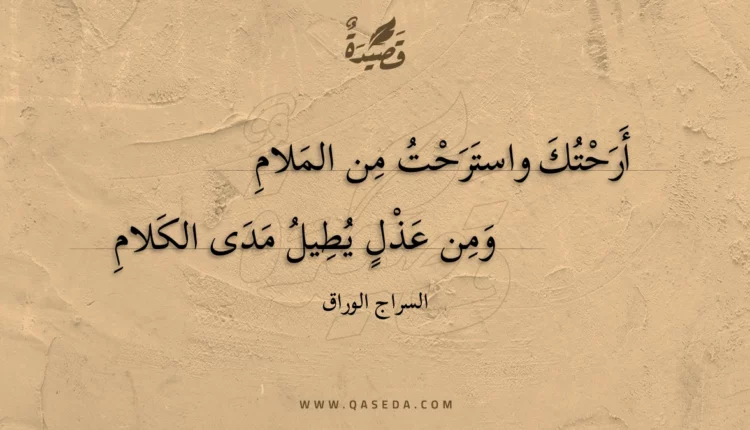 قَصِيدَةٌ
أَرَحْتُكَ واستَرَحْتُ مِن المَلامِ
وَمِن عَذْلٍ يُطِيلُ مَدَى الكَلامِ
السراج الوراق
WWW.QASEDA.COM